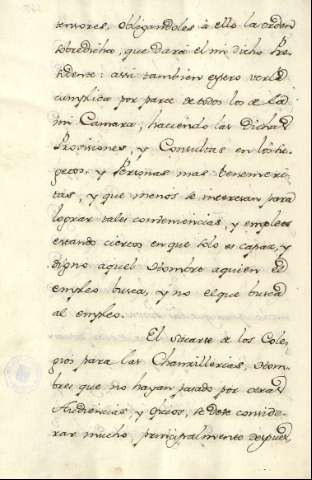 tensores, obligandoles à ello la orden
sobredicha, que dará el mi dicho Pre-
sidente: assi tambien espero verla
cumplida por parte de todos los de la
mi Camara, haciendo las dichas
Provisiones, y Consultas en los Su-
getos, y Personas mas beneméri-
tas, y que menos se interesan para
lograr tales combeniencias, y empleos
estando ciertos en que solo es capaz, y
digno aquel Hombre aquien el
empleo busca, y no el que busca
al empleo.
El sacarse de los Cole-
gios para las Chanzillerias, Hom-
bres que no hayan pasado por otras
Audiencias, y oficios, se debe conside-
rar mucho, principalmente despues